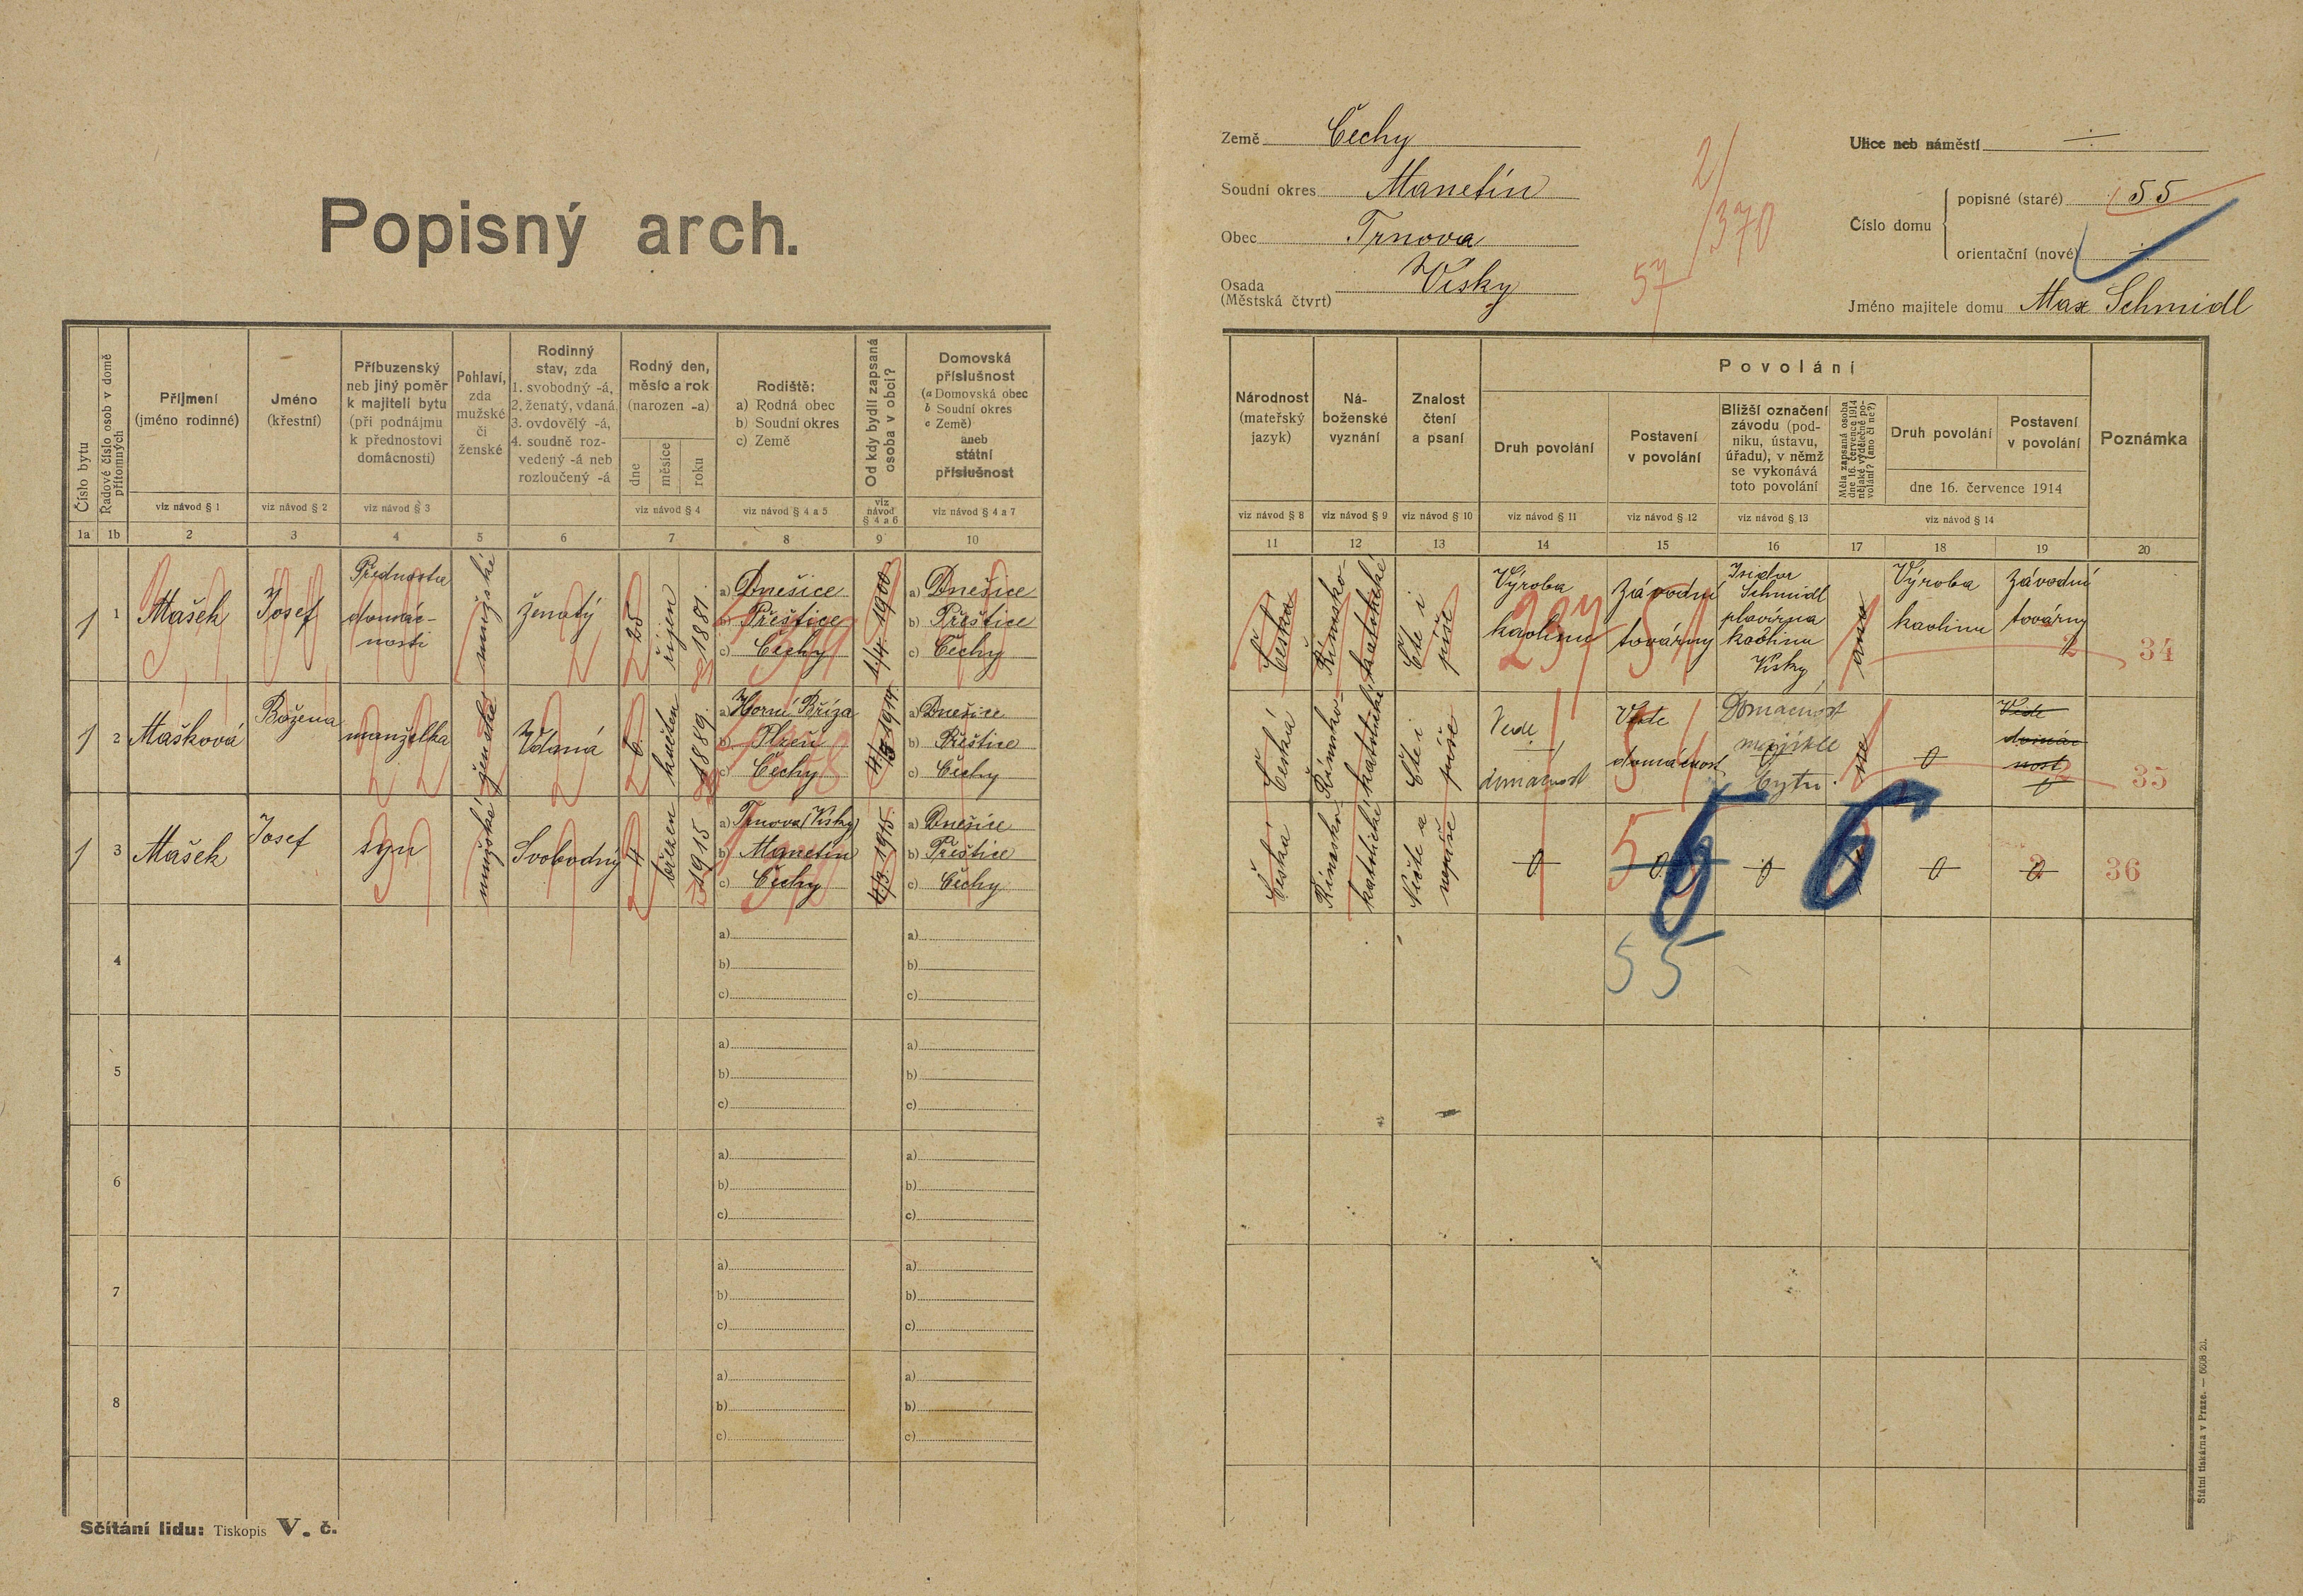 Popisný arch.
Země Čechy
Soudní okres Manetín
Obec Trnova
Osada Vísky
(Městská čtvrt)
2/370
57
Ulice neb náměstí ÷
Číslo domu
popisné (staré) 55
orientační (nové) ÷
Jméno majitele domu Max Schmidl
Číslo bytu
1a
Řadové číslo osob v domě přítomných
1b
Příjmení
(jméno rodinné)
viz návod § 1
2
Jméno
(křestní)
viz návod § 2
3
Příbuzenský
neb jiný poměr
k majiteli bytu
(při podnájmu
k přednostovi
domácnosti)
viz návod § 3
4
Pohlaví,
zda
mužské
či
ženské
5
Rodinný
stav, zda
1. svobodný -á,
2. ženatý, vdaná,
3. ovdovělý -á,
4. soudně roz-
vedený -á neb
rozloučený -á
6
Rodný den,
měsíc a rok
(narozen -a)
dne
měsíce
roku
viz návod § 4
7
Rodiště:
a) Rodná obec
b) Soudní okres
c) Země
viz návod § 4 a 5
8
Od kdy bydlí zapsaná
osoba v obci?
viz
návod
§ 4 a 6
9
Domovská
příslušnost
(a Domovská obec
b Soudní okres
c Země)
aneb
státní
příslušnost
viz návod § 4 a 7
10
Národnost
(mateřský
jazyk)
viz návod § 8
11
Ná-
boženské
vyznání
viz návod § 9
12
Znalost
čtení
a psaní
viz návod § 10
13
Povolání
Druh povolání
viz návod § 11
14
Postavení
v povolání
viz návod § 12
15
Bližší označení
závodu (pod-
niku, ústavu,
úřadu), v němž
se vykonává
toto povolání
viz návod § 13
16
Měla zapsaná osoba
dne 16. července 1914
nějaké výdělečné po-
volání? (ano či ne?)
17
Druh povolání
18
Postavení
v povolání
19
dne 16. července 1914
viz návod § 14
Poznámka
20
1
1
Mašek
Josef
Přednosta
domác-
nosti
mužské
ženatý
25
říjen
1881.
a) Dnešice
b) Přeštice
c) Čechy
1/4. 1900
a) Dnešice
b) Přeštice
c) Čechy
Česká
Římsko-
katolické
Čte i
píše
Výroba
kaolinu
237
Závodní
továrny
51
Isidor
Schmidl
plavírna
kaolinu
Vísky
ano
Výroba
kaolinu
Závodní
továrny
2
34
1
2
Mašková
Božena
manželka
ženské
Vdaná
6.
květen
1889.
a) Horní Bříza
b) Plzeň
c) Čechy
a) Dnešice
b) Přeštice
c) Čechy
Česká
Římsko-
katolické
Čte i
píše
Vede
domácnost
Vede
domácnost
Domacnost
majitele
bytu.
ne
0
Vede
domác
nost
35
1
3
Mašek
Josef
syn
mužské
Svobodný
4
březen
1915
a) Trnova (Vísky)
b) Manetín
c) Čechy
4/3. 1915.
a) Dnešice
b) Přeštice
c) Čechy
Česká
Římsko-
katolické
Nečte a
nepíše
0
5
0
0
6 6
0
0
36
55
4
a)
b)
c)
a)
b)
c)
5
a)
b)
c)
a)
b)
c)
6
a)
b)
c)
a)
b)
c)
7
a)
b)
c)
a)
b)
c)
8
a)
b)
c)
a)
b)
c)
Sčítání lidu: Tiskopis V. č.
Státní tiskárna v Praze. — 6608 20.